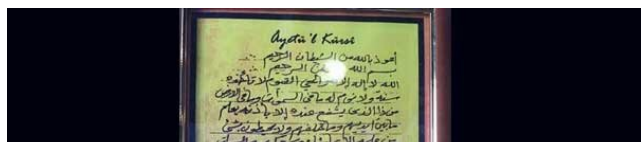 Ayetü'l Kürsi
أعوذ بالله من الشيطان الرجيم
بسم الله الرحيم
الله لا إله إلا هو الحي القيوم لا تأخذه
سنة ولا نوم له ما في السموات وما في الأرض
من ذا الذي يشفع عنده إلا بإذنه يعلم
ما بين أيديهم وما خلفهم ولا يحيطون بشئ